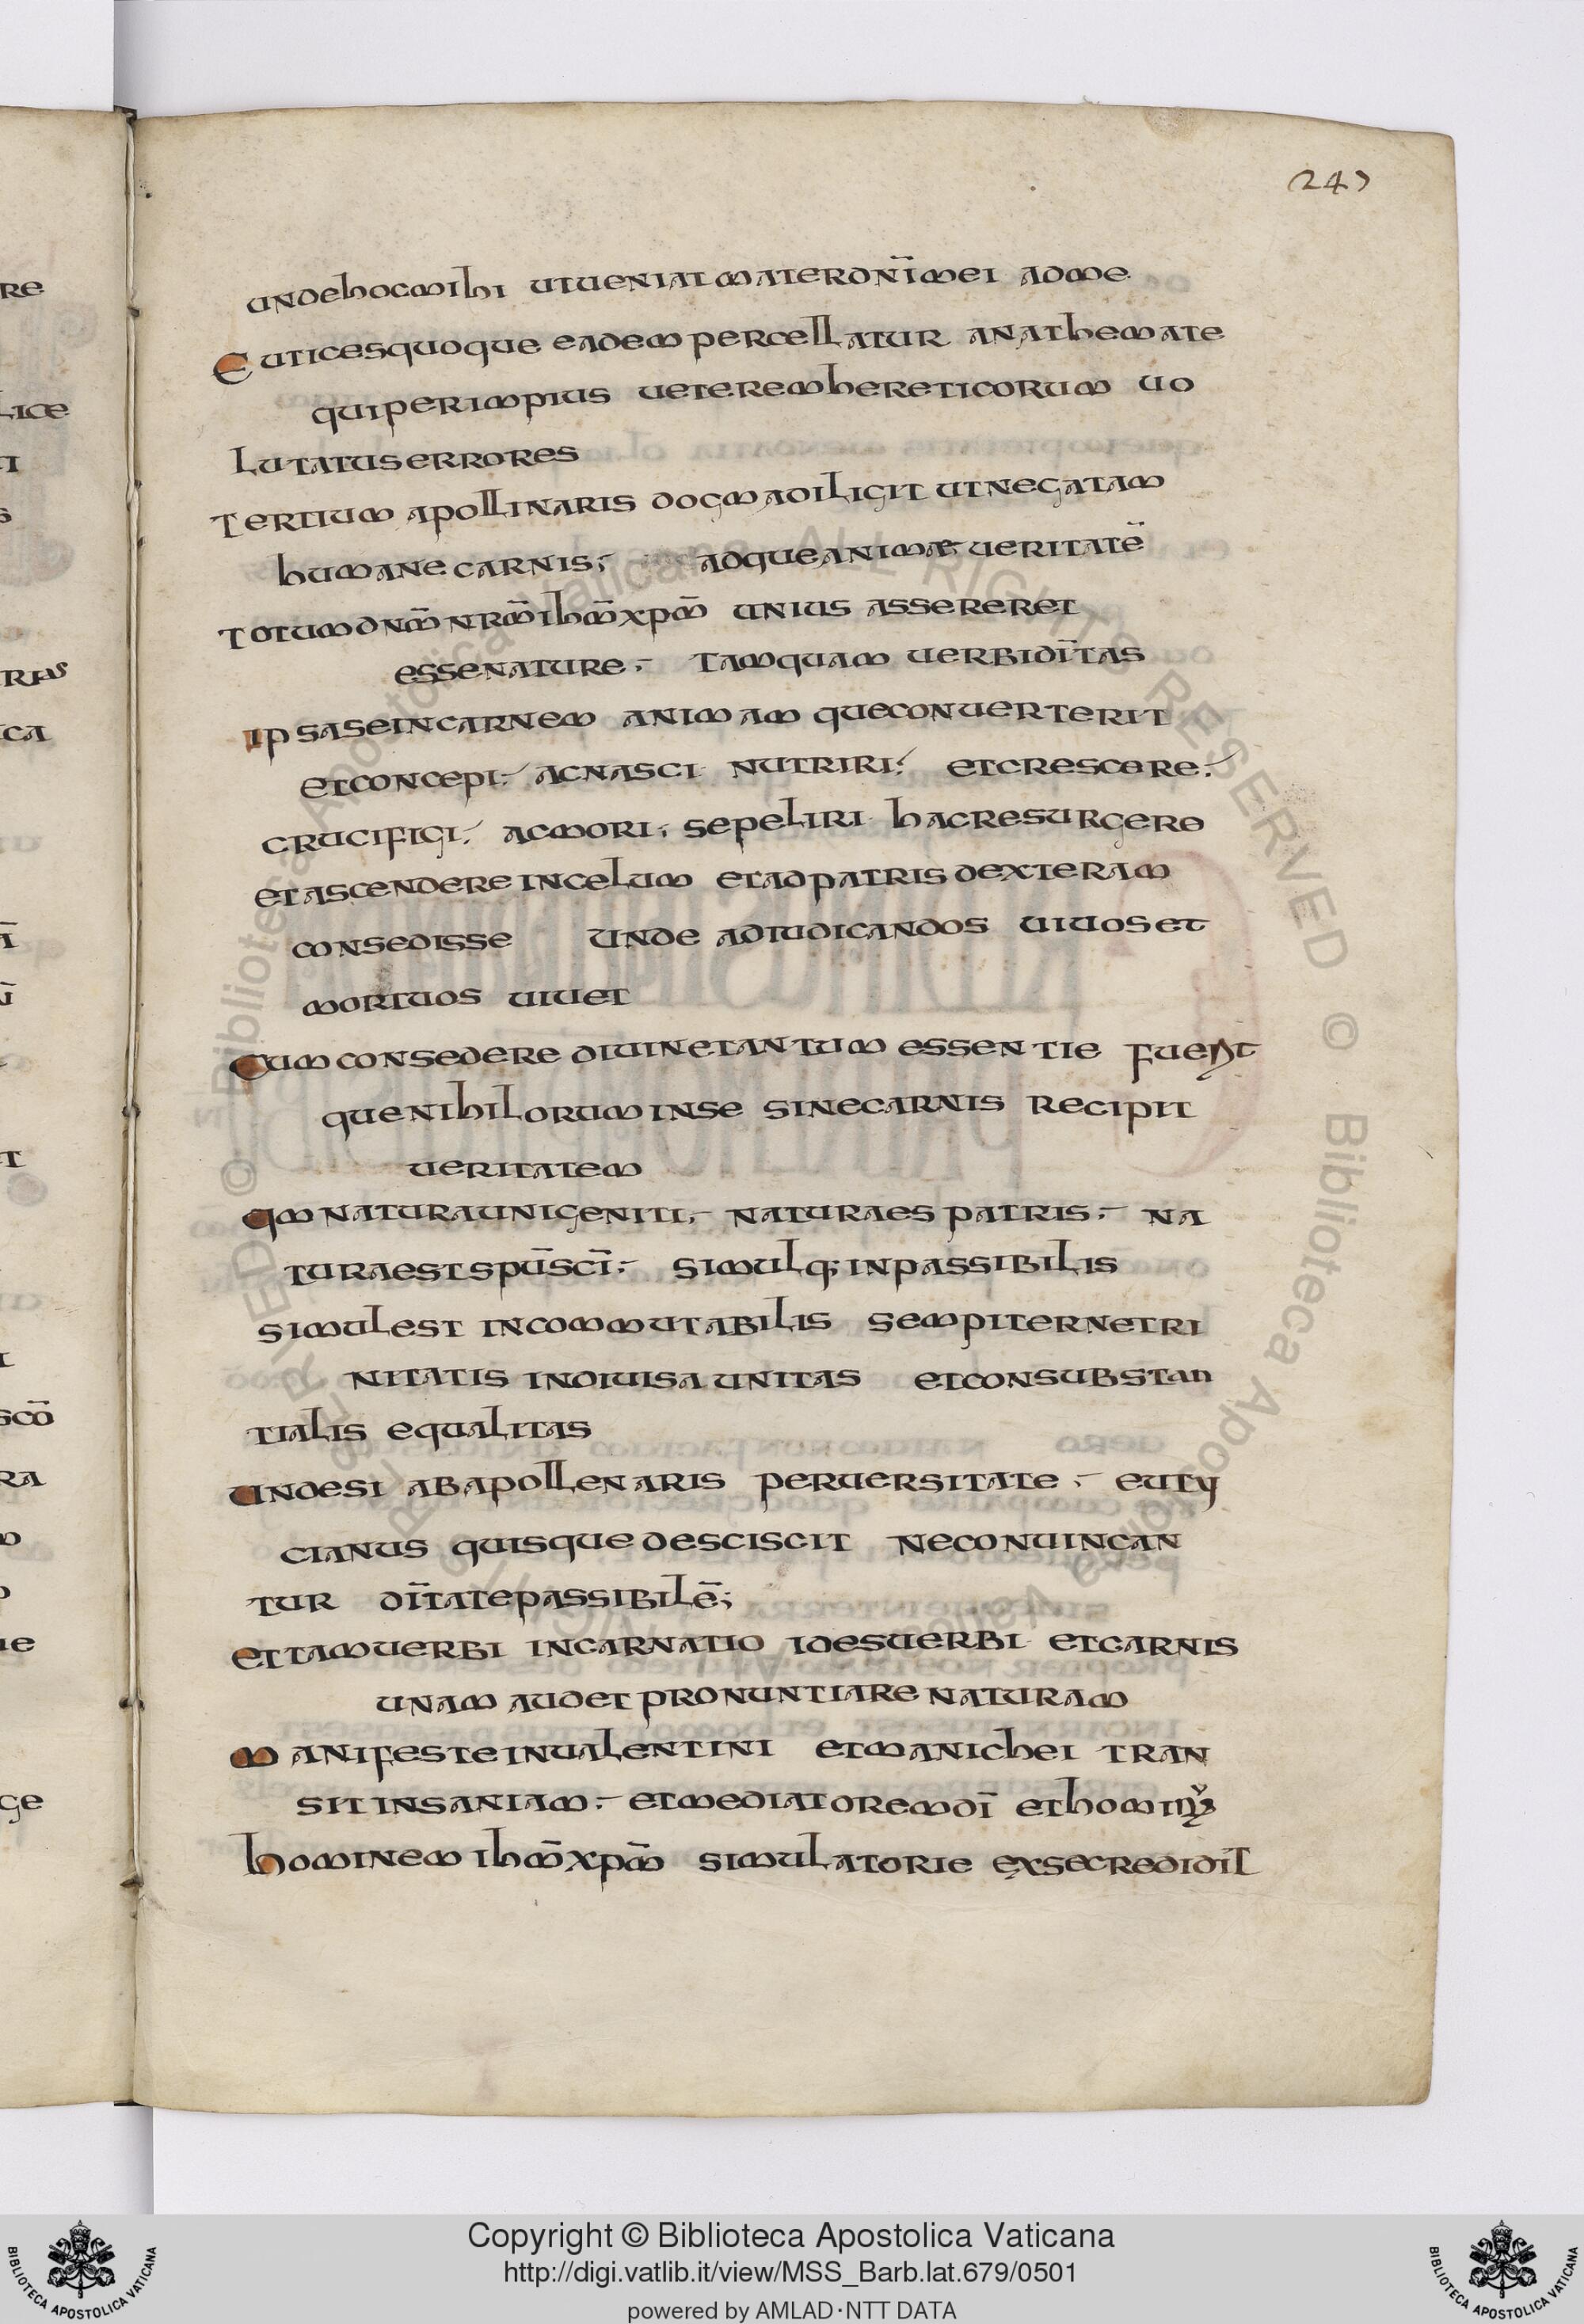 247
undehocmihi utueniat materdnīmei adme
Euticesquoque eadem percellatur anathemate
quiperimpius ueteremhereticorum uo
lutatuserrores
Tertium apollinaris dogmadiligit utnegatam
humane carnis; adqueanimae ueritatē
totumdnm̄ nrm̄ ihm̄ xpm̄ unius assereret
essenature; tamquam uerbidītas
ipsaseincarnem animam queconuerterit
etconcepi; acnasci nutriri; etcrescere;
crucifigi; acmori; sepeliri hacresurgere
etascendere incelum etadpatris dexteram
consedisse unde adiudicandos uiuoset
mortuos uiuet
Cumconsedere diuinetantum essentie fuerit
quenihilorum inse sinecarnis recipit
ueritatem
qm naturaunigeniti; naturaes patris; na
turaest spūscī; simulq; inpassibilis
simulest incommutabilis sempiternetri
nitatis indiuisa unitas etconsubstan
tialis equalitas
undesi abapollenaris peruersitate; euty
cianus quisque desciscit neconuincan
tur dītatepassibilē;
ettamuerbi incarnatio idesuerbi etcarnis
unam audet pronuntiare naturam
manifesteinualentini etmanichei tran
sit insaniam; etmediatoremdī ethominū
hominem ihm̄ xpm̄ simulatorie exsecredidit
re
lice
ca
scō
ra
ge
Copyright © Biblioteca Apostolica Vaticana
http://digi.vatlib.it/view/MSS_Barb.lat.679/0501
powered by AMLAD·NTT DATA
BIBLIOTECA APOSTOLICA VATICANA
BIBLIOTECA APOSTOLICA VATICANA